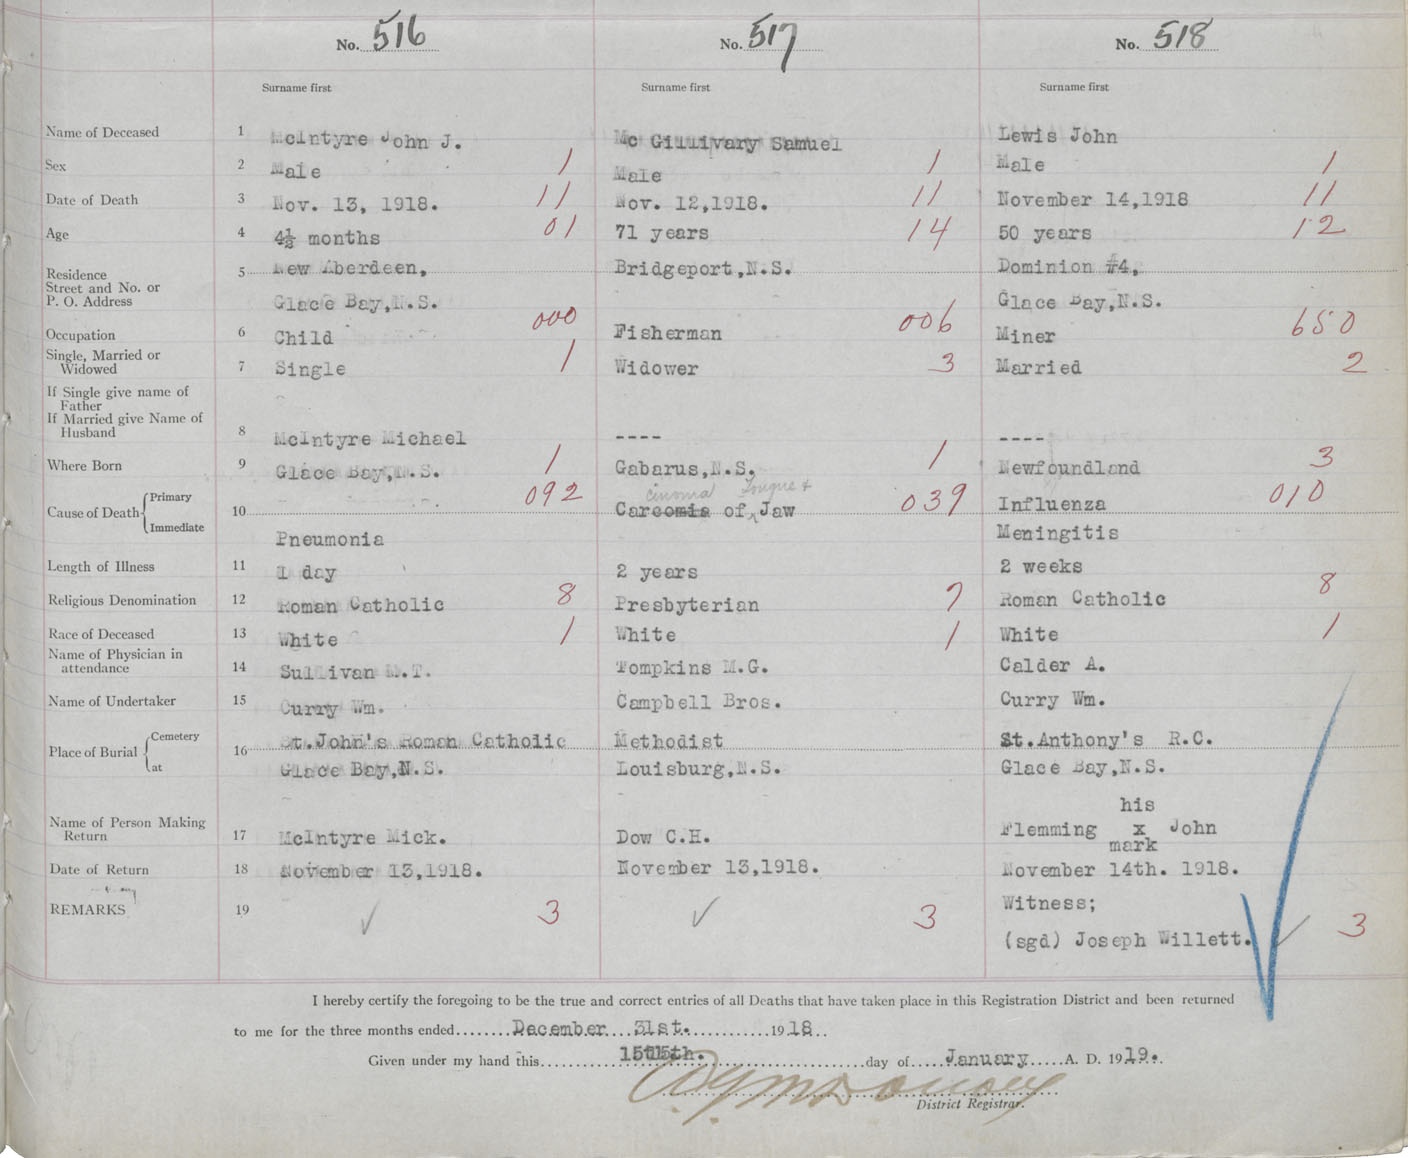 No. 516 No. 517 No. 518
Surname first Surname first Surname first
Name of Deceased 1 McIntyre John J. Mc Gillivary Samuel Lewis John
Sex 2 Male 1 Male 1 Male 1
Date of Death 3 Nov. 13, 1918. 11 Nov. 12,1918. 11 November 14,1918 11
Age 4 4½ months 01 71 years 14 50 years 12
Residence 5 New Aberdeen, Bridgeport,N.S. Dominion #4,
Street and No. or
P. O. Address Glace Bay,N.S. Glace Bay,N.S.
Occupation 6 Child 000 Fisherman 006 Miner 650
Single, Married or
Widowed 7 Single 1 Widower 3 Married 2
If Single give name of
Father
If Married give Name of
Husband 8 McIntyre Michael ---- ----
Where Born 9 Glace Bay,N.S. 1 Gabarus,N.S. 1 Newfoundland 3
cinoma Tongue +
Cause of Death Primary 10 092 Carcomia of Jaw 039 Influenza 010
Immediate Pneumonia Meningitis
Length of Illness 11 1 day 2 years 2 weeks
Religious Denomination 12 Roman Catholic 8 Presbyterian 7 Roman Catholic 8
Race of Deceased 13 White 1 White 1 White 1
Name of Physician in
attendance 14 Sullivan M.T. Tompkins M.G. Calder A.
Name of Undertaker 15 Curry Wm. Campbell Bros. Curry Wm.
Place of Burial Cemetery 16 St.John's Roman Catholic Methodist St.Anthony's R.C.
at Glace Bay,N.S. Louisburg,N.S. Glace Bay,N.S.
his
Name of Person Making
Return 17 McIntyre Mick. Dow C.H. Flemming x John
mark
Date of Return 18 November 13,1918. November 13,1918. November 14th. 1918.
REMARKS 19 ✓ 3 ✓ 3 Witness;
(sgd) Joseph Willett. ✓ 3
I hereby certify the foregoing to be the true and correct entries of all Deaths that have taken place in this Registration District and been returned
to me for the three months ended December 31st. 1918
Given under my hand this 15th. day of January A. D. 1919.
District Registrar.